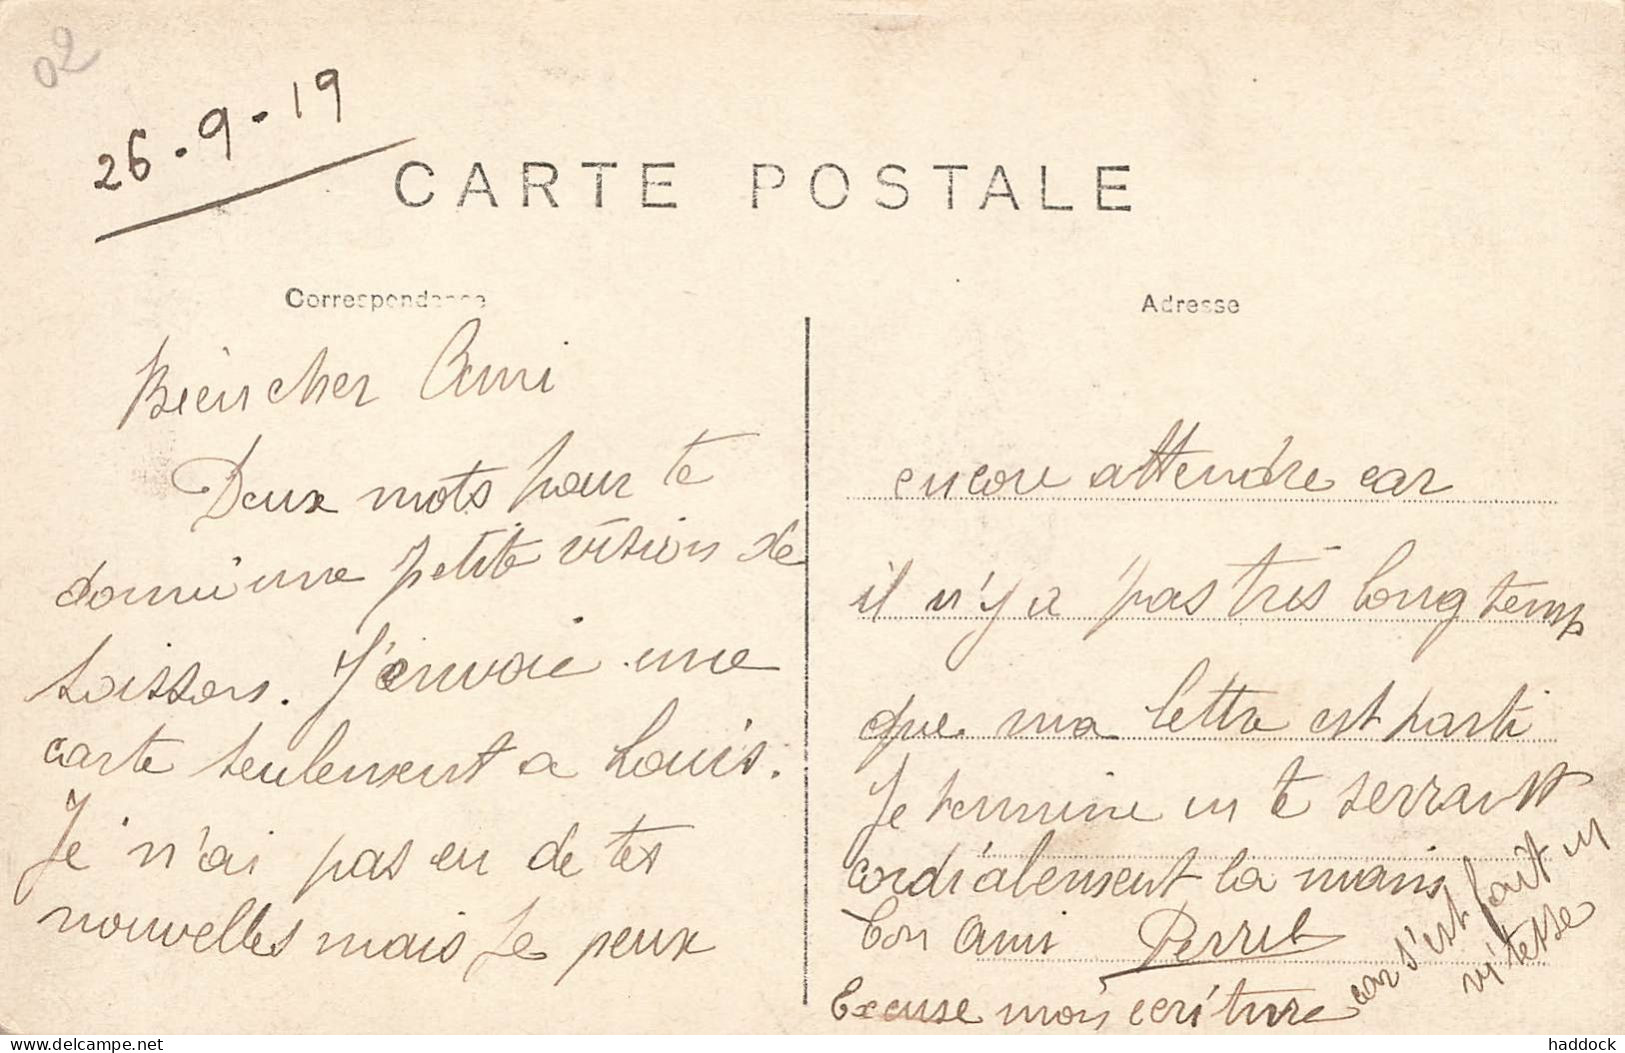 02
26.9.19
CARTE POSTALE
Correspondance
Adresse
Bien cher Ami
Deux mots pour te
donné une petite vision de
soissons. J'envoie une
carte seulement a Louis.
Je n'ai pas eu de tes
nouvelles mais je peux
encore attendre car
il n'y a pas très longtemp
que ma lettre est parti
Je termine en te serrant
cordialement la main
Ton Ami Perret
Excuse mon ecriture
car s'est fait en
vitesse
delcampe.net
haddock